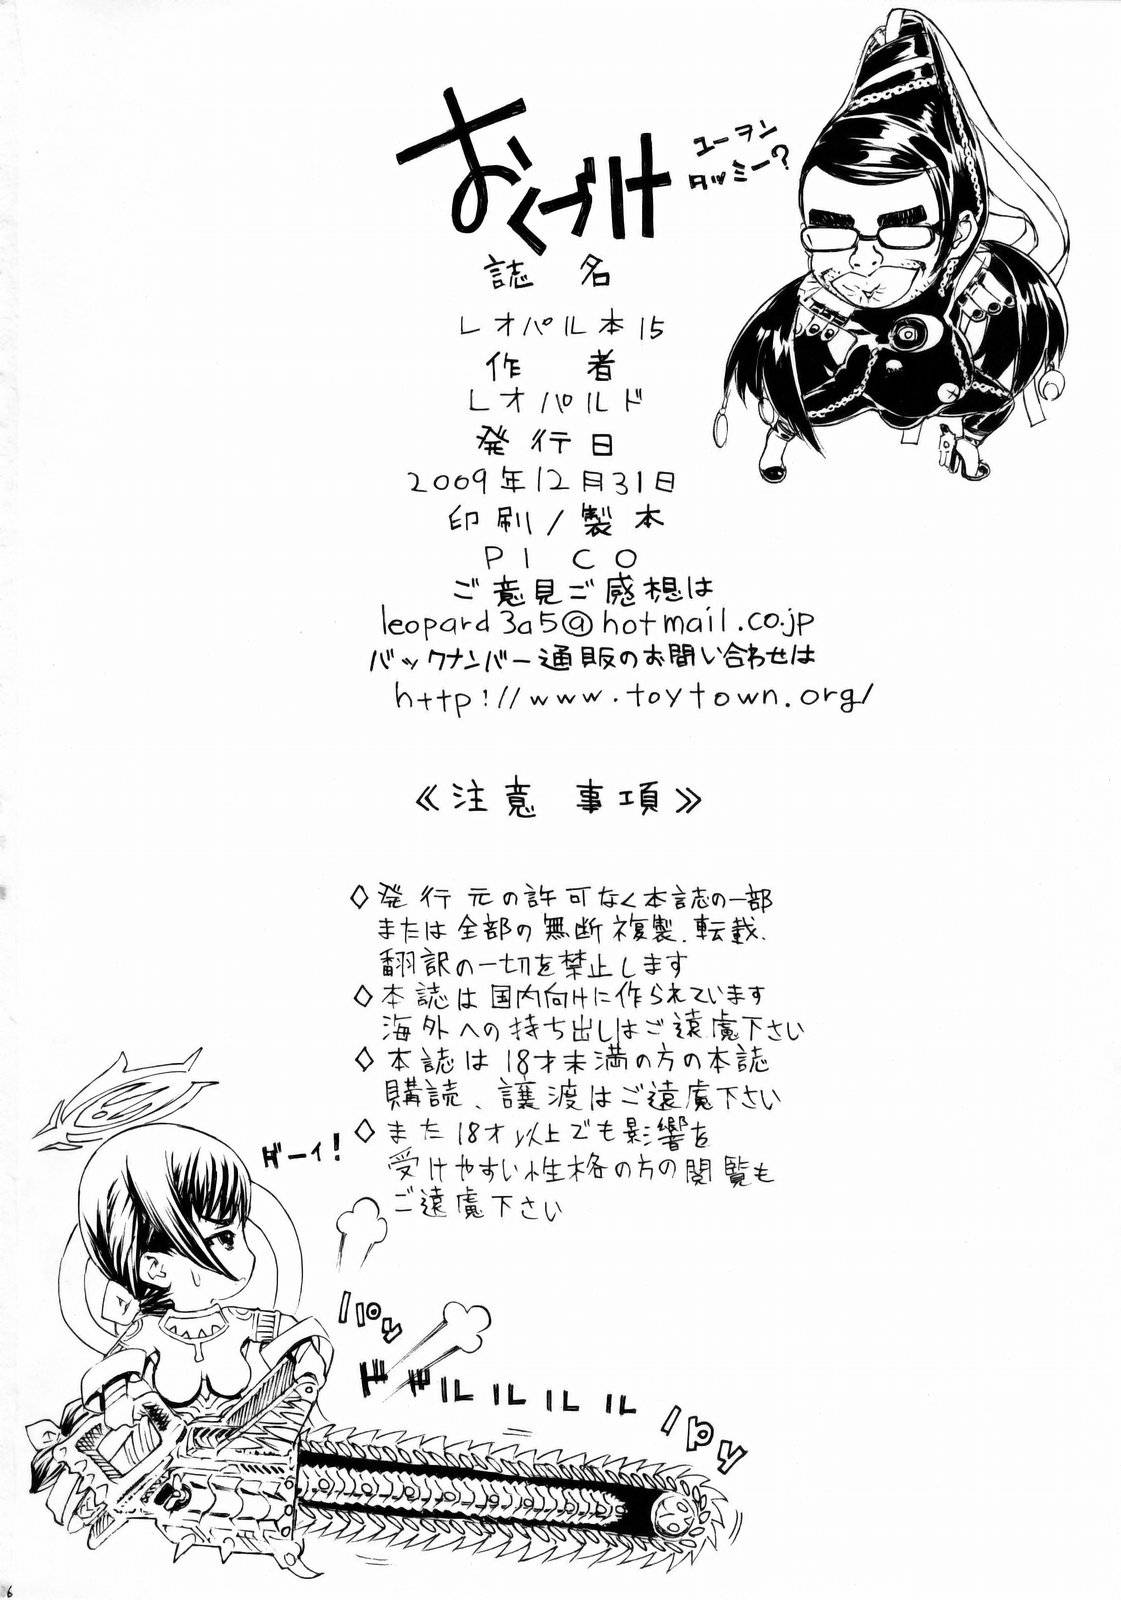 おくづけ
ユーヲン
タッミー?
誌名
レオパル本15
作者
レオパルド
発行日
2009年12月31日
印刷/製本
PICO
ご意見ご感想は
leopard3a5@hotmail.co.jp
バックナンバー通販のお問い合わせは
http://www.toytown.org/
≪注意 事項≫
◇発行元の許可なく本誌の一部
または全部の無断複製、転載、
翻訳の一切を禁止します
◇本誌は国内向けに作られています
海外への持ち出しはご遠慮下さい
◇本誌は18才未満の方の本誌
購読、譲渡はご遠慮下さい
◇また18才以上でも影響を
受けやすい性格の方の閲覧も
ご遠慮下さい
ダーイ!
パウ
ドドルルルル
パウ
6